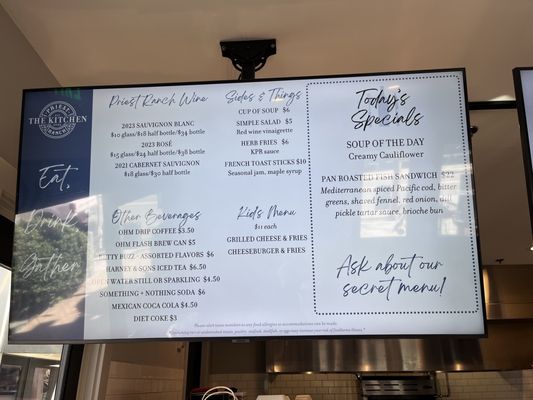 PRIEST
THE KITCHEN
RANCH
Eat,
Drink
Gather
Priest Ranch Wine
2023 SAUVIGNON BLANC
$10 glass/$18 half bottle/$34 bottle
2023 ROSÉ
$15 glass/$24 half bottle/$38 bottle
2021 CABERNET SAUVIGNON
$18 glass/$30 half bottle
Other Beverages
OHM DRIP COFFEE $3.50
OHM FLASH BREW CAN $5
BUZZ - ASSORTED FLAVORS $6
HARNEY & SONS ICED TEA $6.50
OPEN WATER STILL OR SPARKLING $4.50
SOMETHING + NOTHING SODA $6
MEXICAN COCA COLA $4.50
DIET COKE $3
Sides & Things
CUP OF SOUP $6
SIMPLE SALAD $5
Red wine vinaigrette
HERB FRIES $6
KPR sauce
FRENCH TOAST STICKS $10
Seasonal jam, maple syrup
Kids Menu
$11 each
GRILLED CHEESE & FRIES
CHEESEBURGER & FRIES
Today's
Specials
SOUP OF THE DAY
Creamy Cauliflower
PAN ROASTED FISH SANDWICH $22
Mediterranean spiced Pacific cod, bitter
greens, shaved fennel, red onion, dill
pickle tartar sauce, brioche bun
Ask about our
secret menu!
Please alert team members to any food allergies or accommodations can be made.